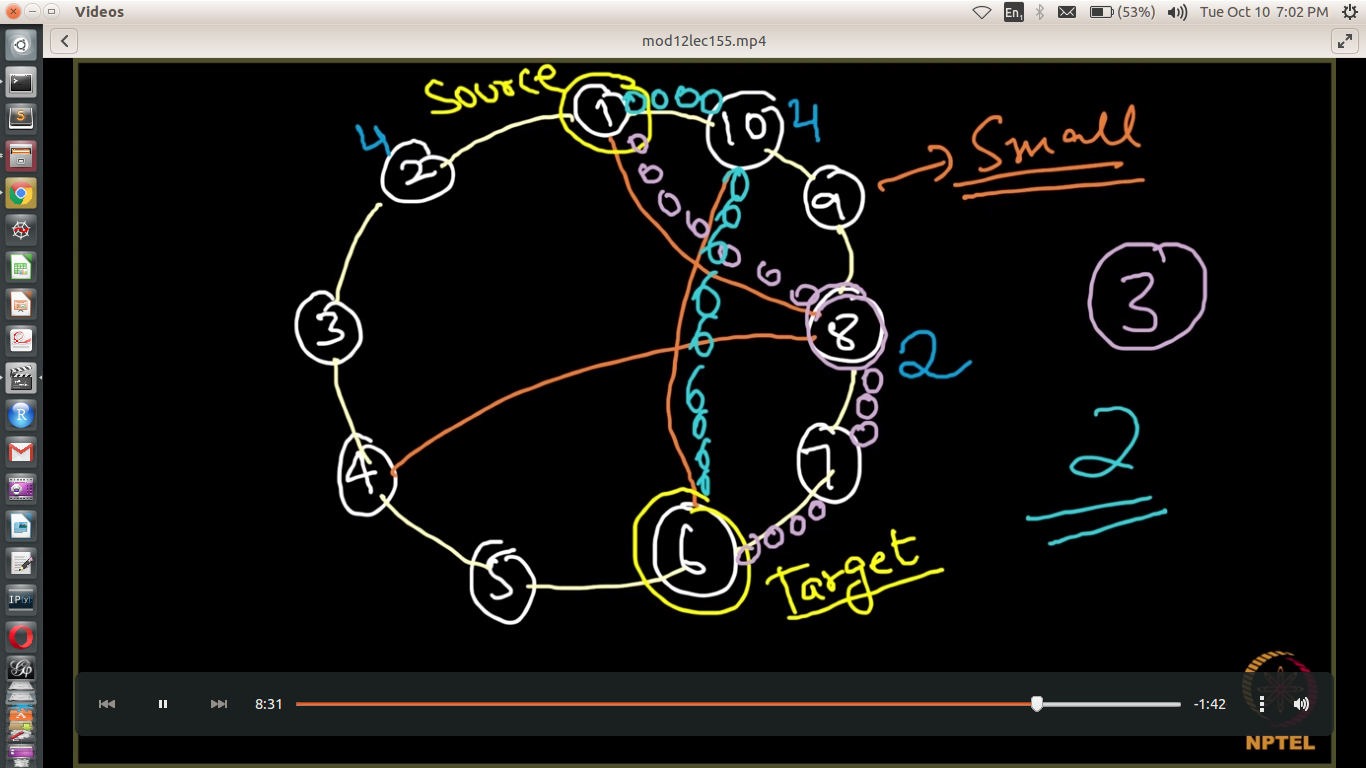 Videos
En1
(53%)
Tue Oct 10 7:02 PM
mod12lec155.mp4
Source
1
10
4
4
2
9
Small
3
8
2
3
4
7
2
6
5
Target
8:31
-1:42
NPTEL